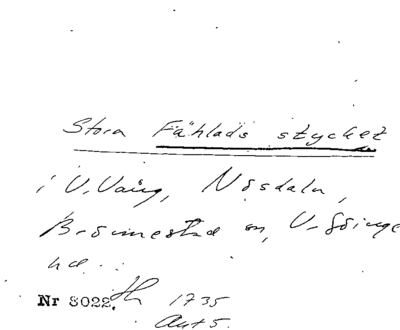 Stora Fählads stycket
i V. Vång, Nosdala,
Brönnestad sn, V. Göinge
hd.
Nr 8022. 1735
Akt 5.